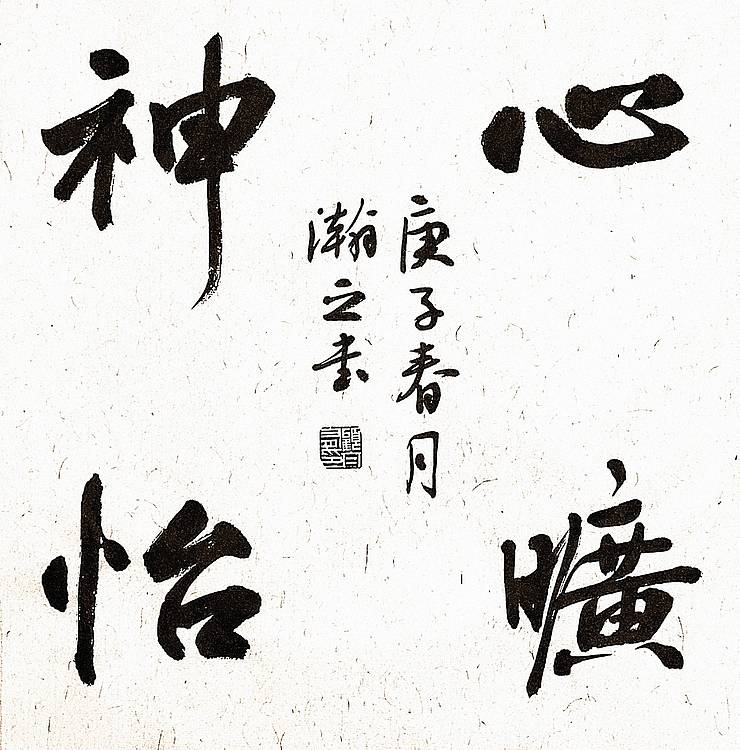 心曠
神怡
庚子春月
瀚之書